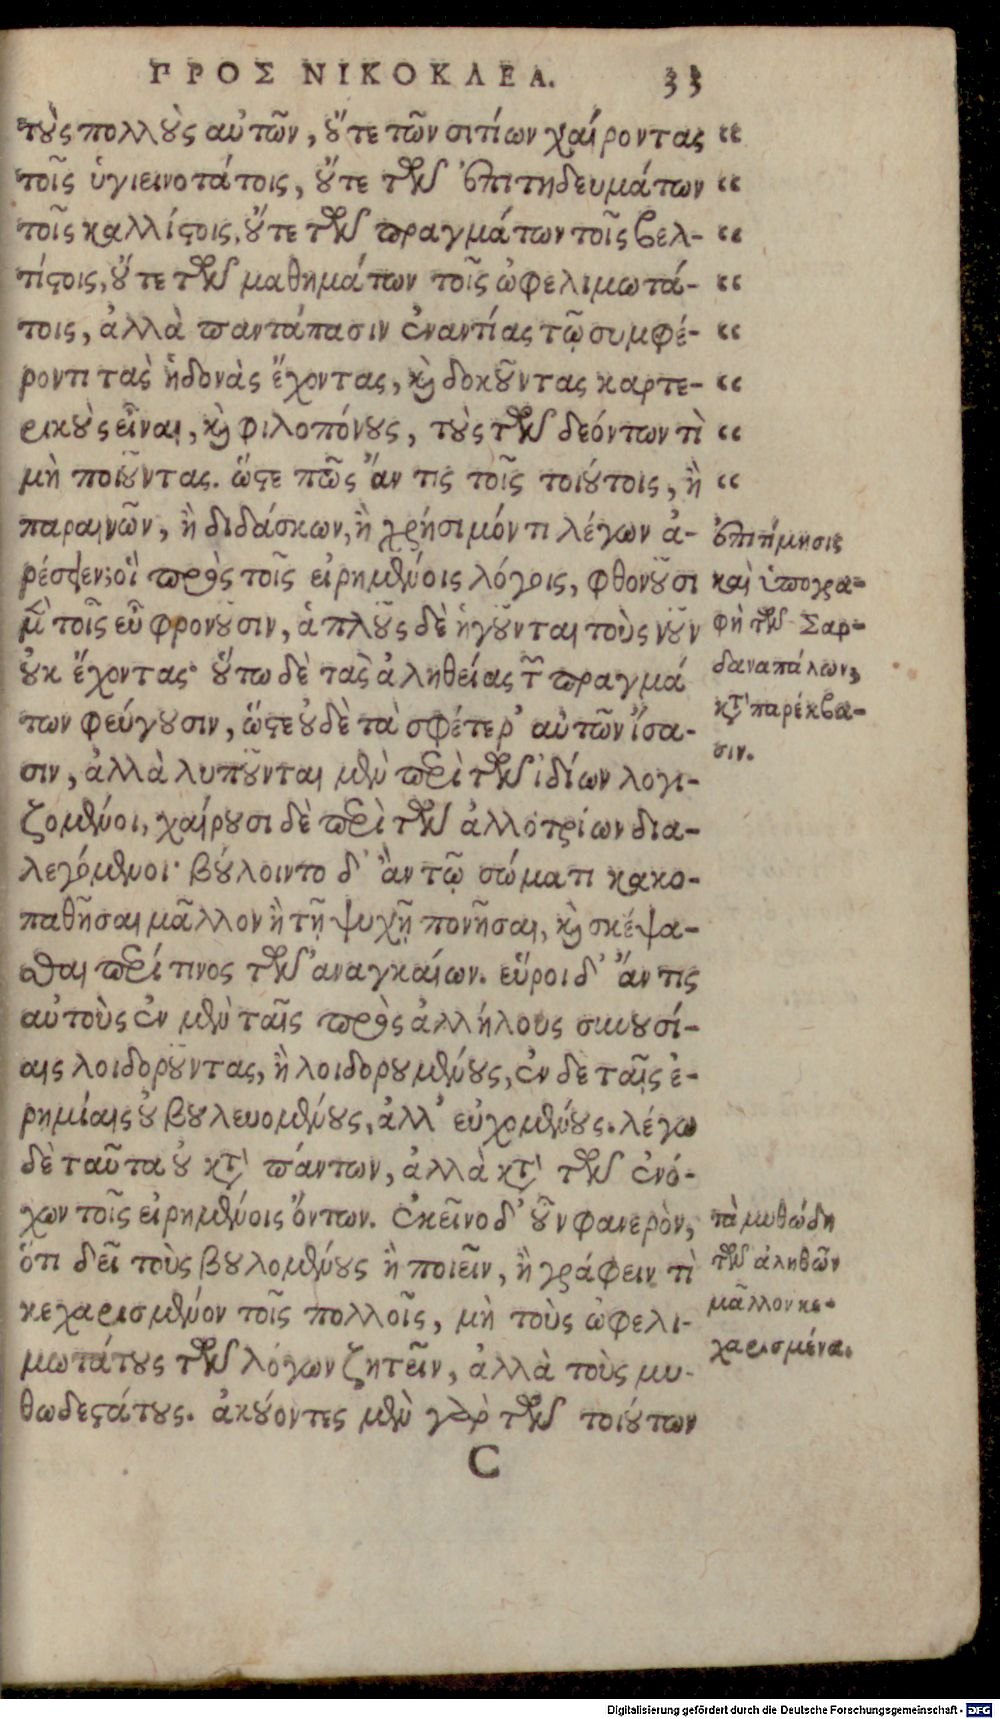 ΠΡΟΣ ΝΙΚΟΚΛΕΑ. 33
τοὺς πολλοὺς αὐτῶν, οὔτε τῶν σιτίων χαίροντας “
τοῖς ὑγιεινοτάτοις, οὔτε τῶν ἐπιτηδευμάτων “
τοῖς καλλίστοις, οὔτε τῶν πραγμάτων τοῖς βελ- “
τίστοις, οὔτε τῶν μαθημάτων τοῖς ὠφελιμωτά- “
τοις, ἀλλὰ παντάπασιν ἐναντίας τῷ συμφέ- “
ροντι τὰς ἡδονὰς ἔχοντας, καὶ δοκοῦντας καρτε- “
ρικοὺς εἶναι, καὶ φιλοπόνους, τοὺς τῶν δεόντων τὶ “
μὴ ποιοῦντας. ὥστε πῶς ἄν τις τοῖς τοιούτοις, ἢ “
παραινῶν, ἢ διδάσκων, ἢ χρήσιμόν τι λέγων ἀ-
ρέσειεν; οἳ πρὸς τοῖς εἰρημένοις λόγοις, φθονοῦσι
μὲν τοῖς εὖ φρονοῦσιν, ἁπλοῦς δὲ ἡγοῦνται τοὺς νοῦν
οὐκ ἔχοντας· οὕτω δὲ τὰς ἀληθείας τῶν πραγμά
των φεύγουσιν, ὥστε οὐδὲ τὰ σφέτερ’ αὐτῶν ἴσα-
σιν, ἀλλὰ λυποῦνται μὲν περὶ τῶν ἰδίων λογι-
ζομένοι, χαίρουσι δὲ περὶ τῶν ἀλλοτρίων δια-
λεγόμενοι· βούλοιντο δ’ ἂν τῷ σώματι κακο-
παθῆσαι μᾶλλον ἢ τῇ ψυχῇ πονῆσαι, καὶ σκέψα-
σθαι περί τινος τῶν ἀναγκαίων. εὕροι δ’ ἄν τις
αὐτοὺς ἐν μὲν ταῖς πρὸς ἀλλήλους συνουσί-
αις λοιδοροῦντας, ἢ λοιδορουμένους, ἐν δὲ ταῖς ἐ-
ρημίαις οὐ βουλευομένους, ἀλλ’ εὐχομένους. λέγω
δὲ ταῦτα οὐ κατὰ πάντων, ἀλλὰ κατὰ τῶν ἐνό-
χων τοῖς εἰρημένοις ὄντων. ἐκεῖνο δ’ οὖν φανερὸν,
ὅτι δεῖ τοὺς βουλομένους ἢ ποιεῖν, ἢ γράφειν τὶ
κεχαρισμένον τοῖς πολλοῖς, μὴ τοὺς ὠφελι-
μωτάτους τῶν λόγων ζητεῖν, ἀλλὰ τοὺς μυ-
θωδεστάτους. ἀκούοντες μὲν γὰρ τῶν τοιούτων
C
ἐπιτίμησις
καὶ ὑπογρα-
φὴ τῶν Σαρ-
δαναπάλων,
κατὰ παρέκβα-
σιν.
τὰ μυθώδη
τῶν ἀληθῶν
μᾶλλον κε-
χαρισμένα.
Digitalisierung gefördert durch die Deutsche Forschungsgemeinschaft - DFG